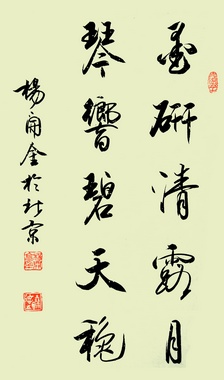 墨研清露月
琴響碧天穐
楊金於北京